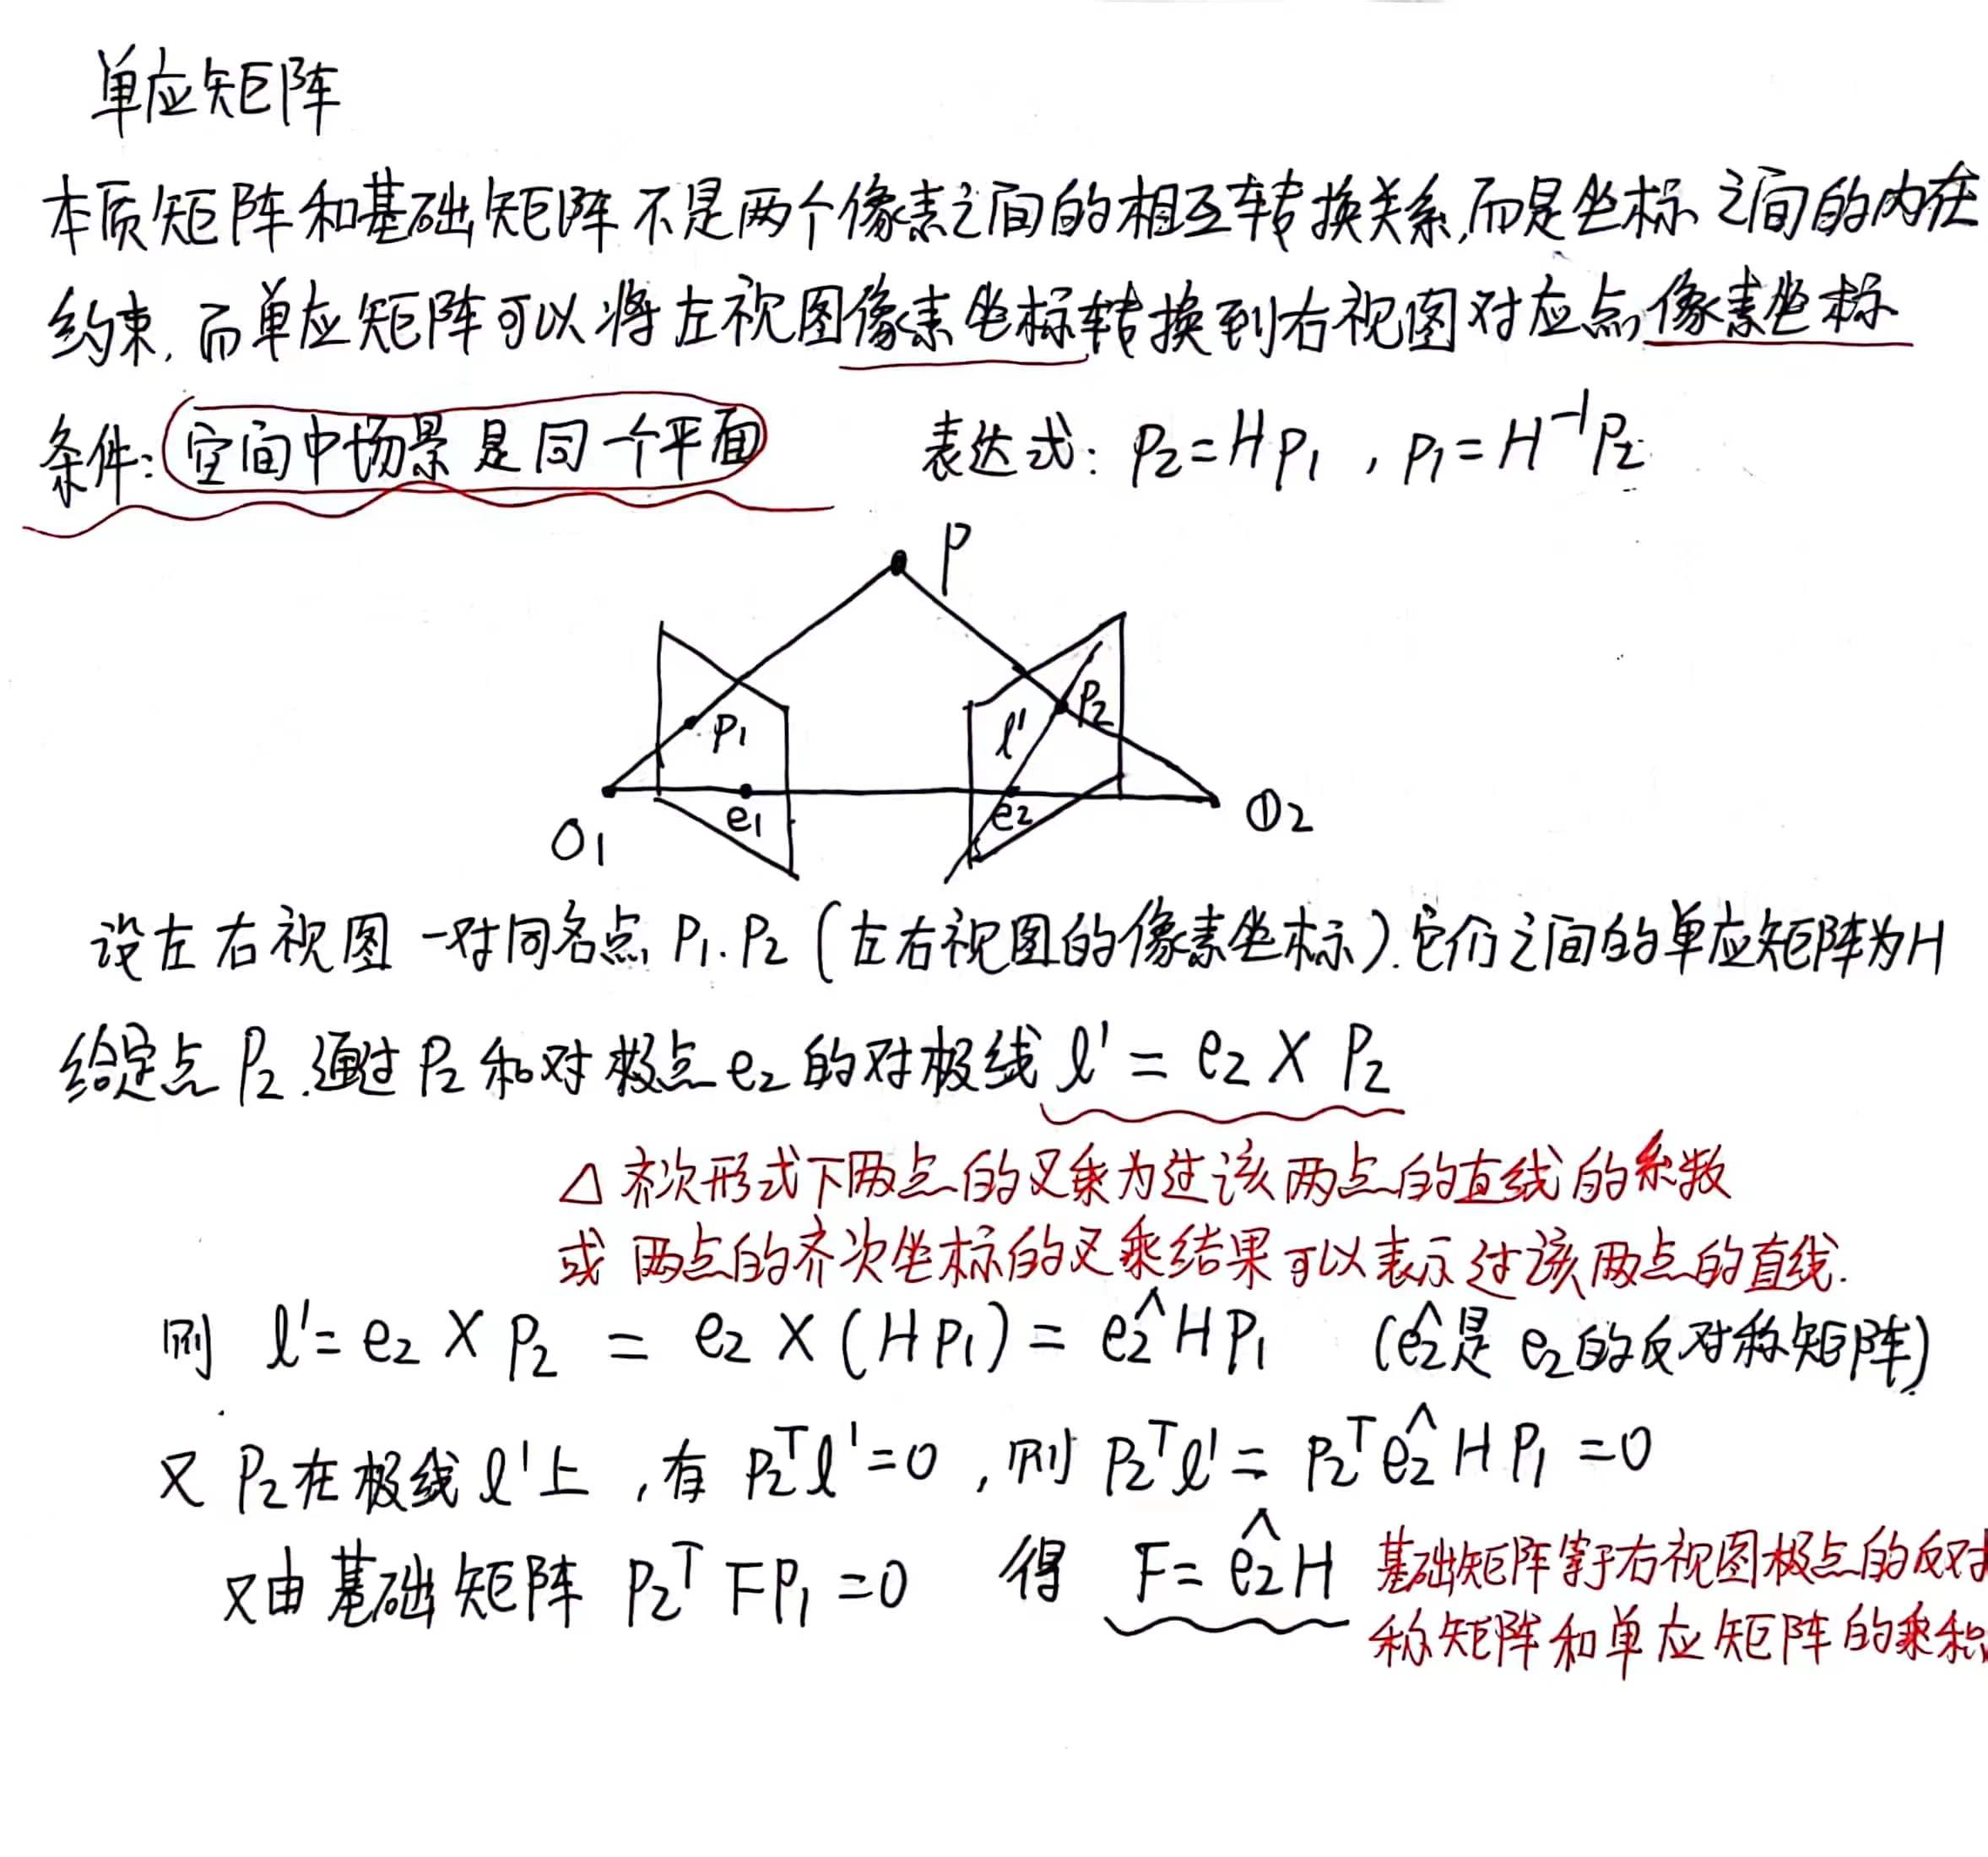 单应矩阵
本质矩阵和基础矩阵不是两个像素之间的相互转换关系,而是坐标之间的内在
约束,而单应矩阵可以将左视图像素坐标转换到右视图对应点像素坐标
条件:空间中场景是同一个平面 表达式: P₂=HP₁ , P₁=H⁻¹P₂
P
P₁ l' P₂
e₁ e₂
O₁ O₂
设左右视图一对同名点 P₁.P₂ (左右视图的像素坐标).它们之间的单应矩阵为H
给定点P₂.通过P₂和对极点e₂的对极线 l' = e₂ × P₂
△ 齐次形式下两点的叉乘为过该两点的直线的系数
或 两点的齐次坐标的叉乘结果可以表示过该两点的直线.
则 l'= e₂ × P₂ = e₂ × (HP₁) = e₂^HP₁ (e₂^是 e₂的反对称矩阵)
又 P₂在极线l'上 ,有 P₂ᵀl'=0 ,则 P₂ᵀl' = P₂ᵀe₂^HP₁ =0
又由基础矩阵 P₂ᵀFP₁=0 得 F= e₂^H 基础矩阵等于右视图极点的反对
称矩阵和单应矩阵的乘积